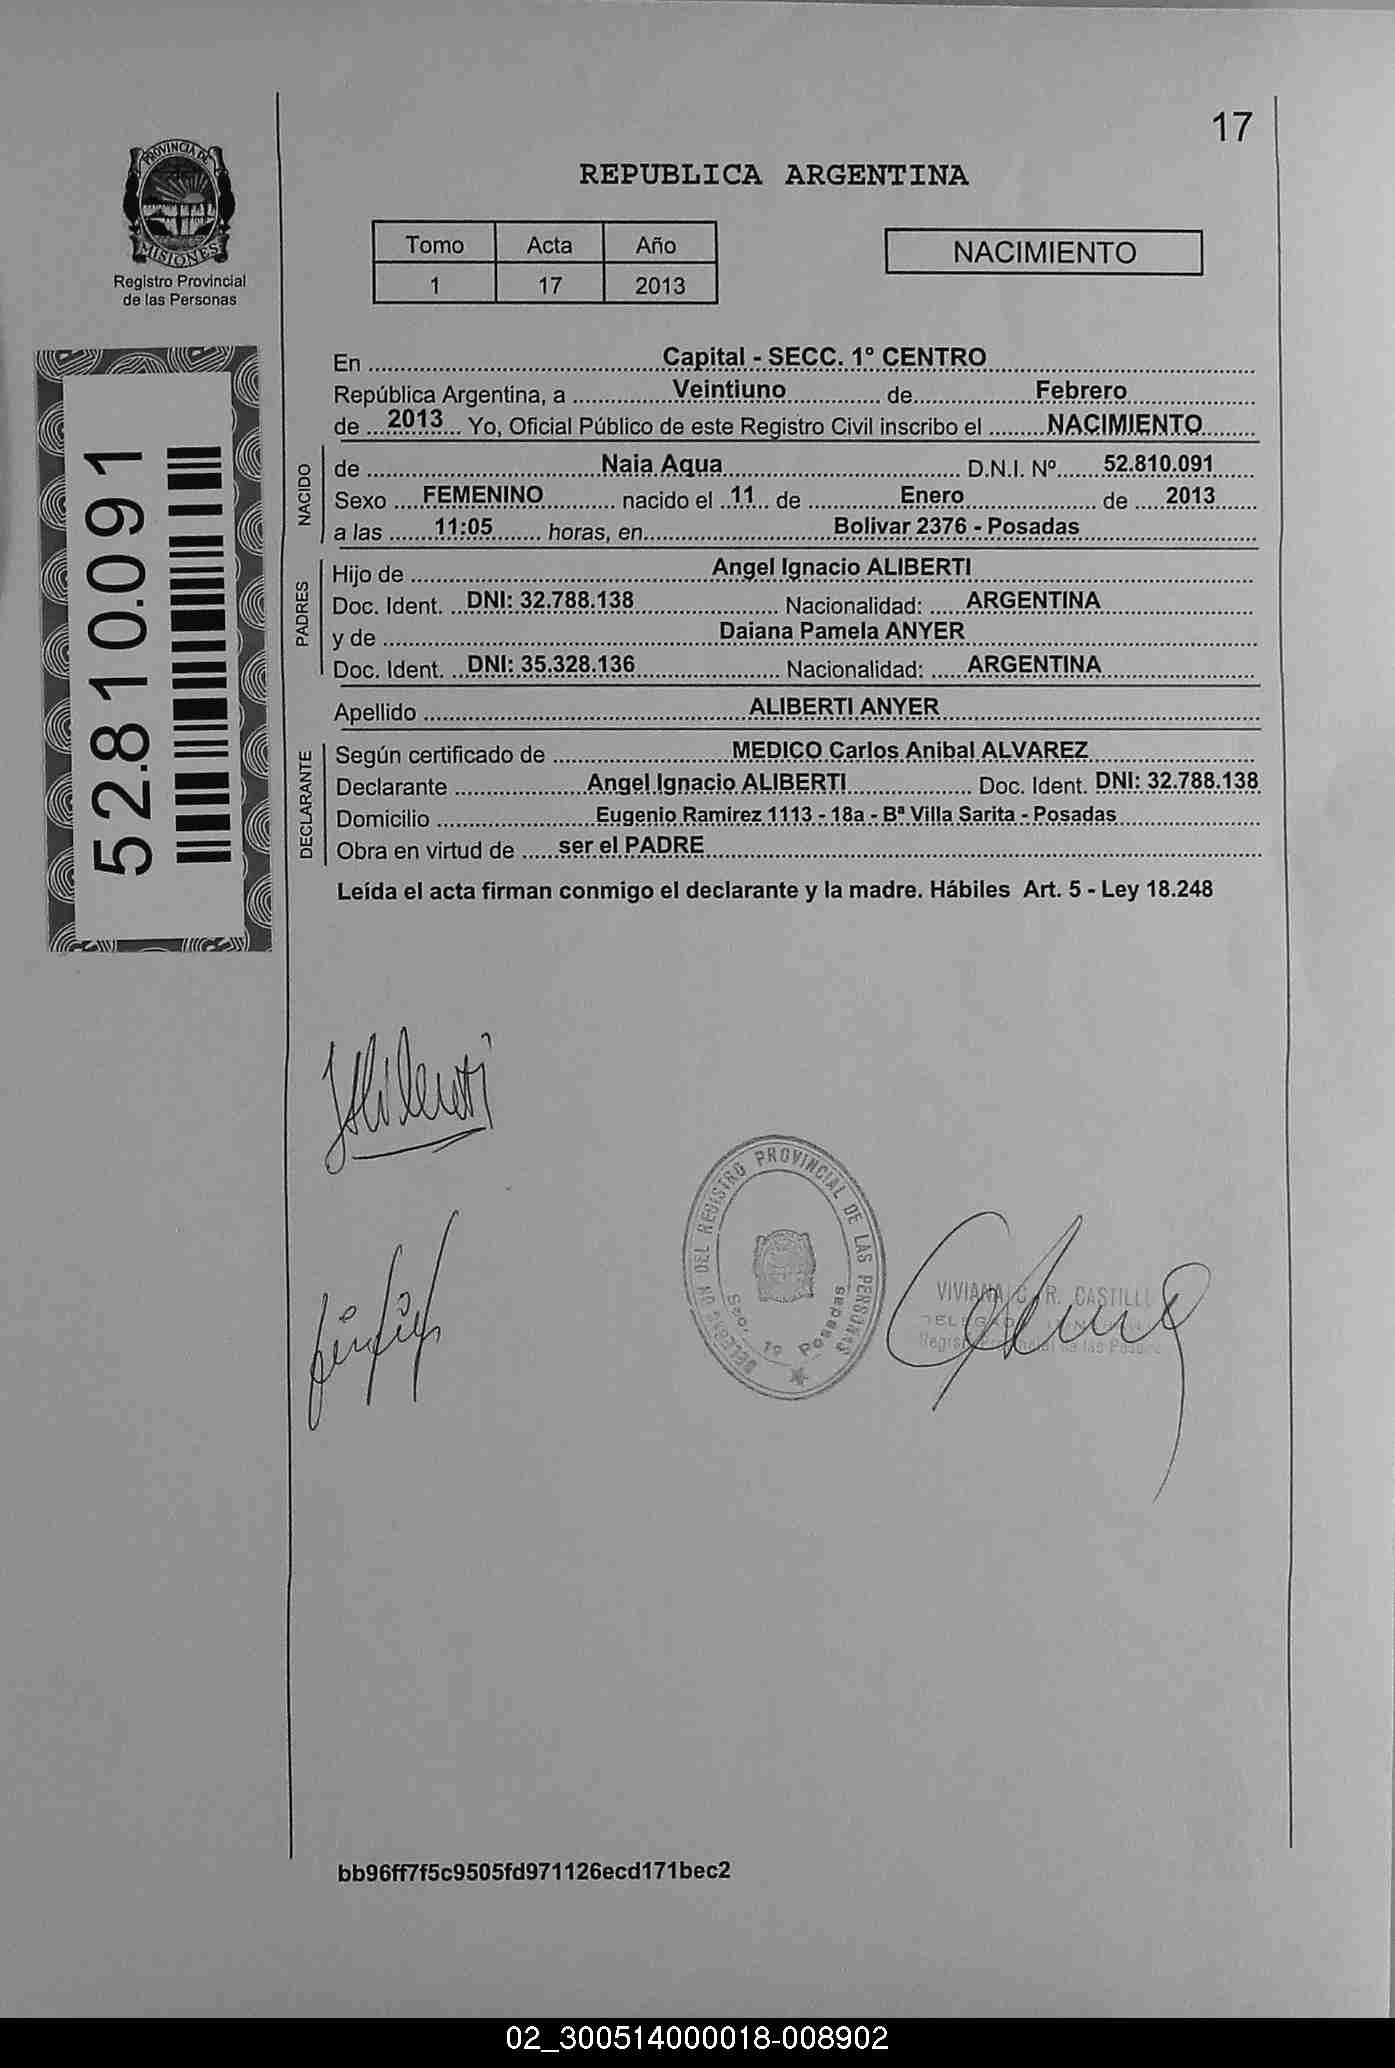 17
PROVINCIA DE
MISIONES
Registro Provincial
de las Personas
REPUBLICA ARGENTINA
Tomo Acta Año
1 17 2013
NACIMIENTO
52.810.091
En Capital - SECC. 1° CENTRO
República Argentina, a Veintiuno de Febrero
de 2013 Yo, Oficial Público de este Registro Civil inscribo el NACIMIENTO
NACIDO
de Naia Aqua D.N.I. Nº 52.810.091
Sexo FEMENINO nacido el 11 de Enero de 2013
a las 11:05 horas, en Bolivar 2376 - Posadas
PADRES
Hijo de Angel Ignacio ALIBERTI
Doc. Ident. DNI: 32.788.138 Nacionalidad: ARGENTINA
y de Daiana Pamela ANYER
Doc. Ident. DNI: 35.328.136 Nacionalidad: ARGENTINA
Apellido ALIBERTI ANYER
DECLARANTE
Según certificado de MEDICO Carlos Anibal ALVAREZ
Declarante Angel Ignacio ALIBERTI Doc. Ident. DNI: 32.788.138
Domicilio Eugenio Ramirez 1113 - 18a - Bª Villa Sarita - Posadas
Obra en virtud de ser el PADRE
Leída el acta firman conmigo el declarante y la madre. Hábiles Art. 5 - Ley 18.248
DELEGACION DEL REGISTRO PROVINCIAL DE LAS PERSONAS
Secc. 1ª Posadas
VIVIANA R. CASTILLO
bb96ff7f5c9505fd971126ecd171bec2
02_300514000018-008902